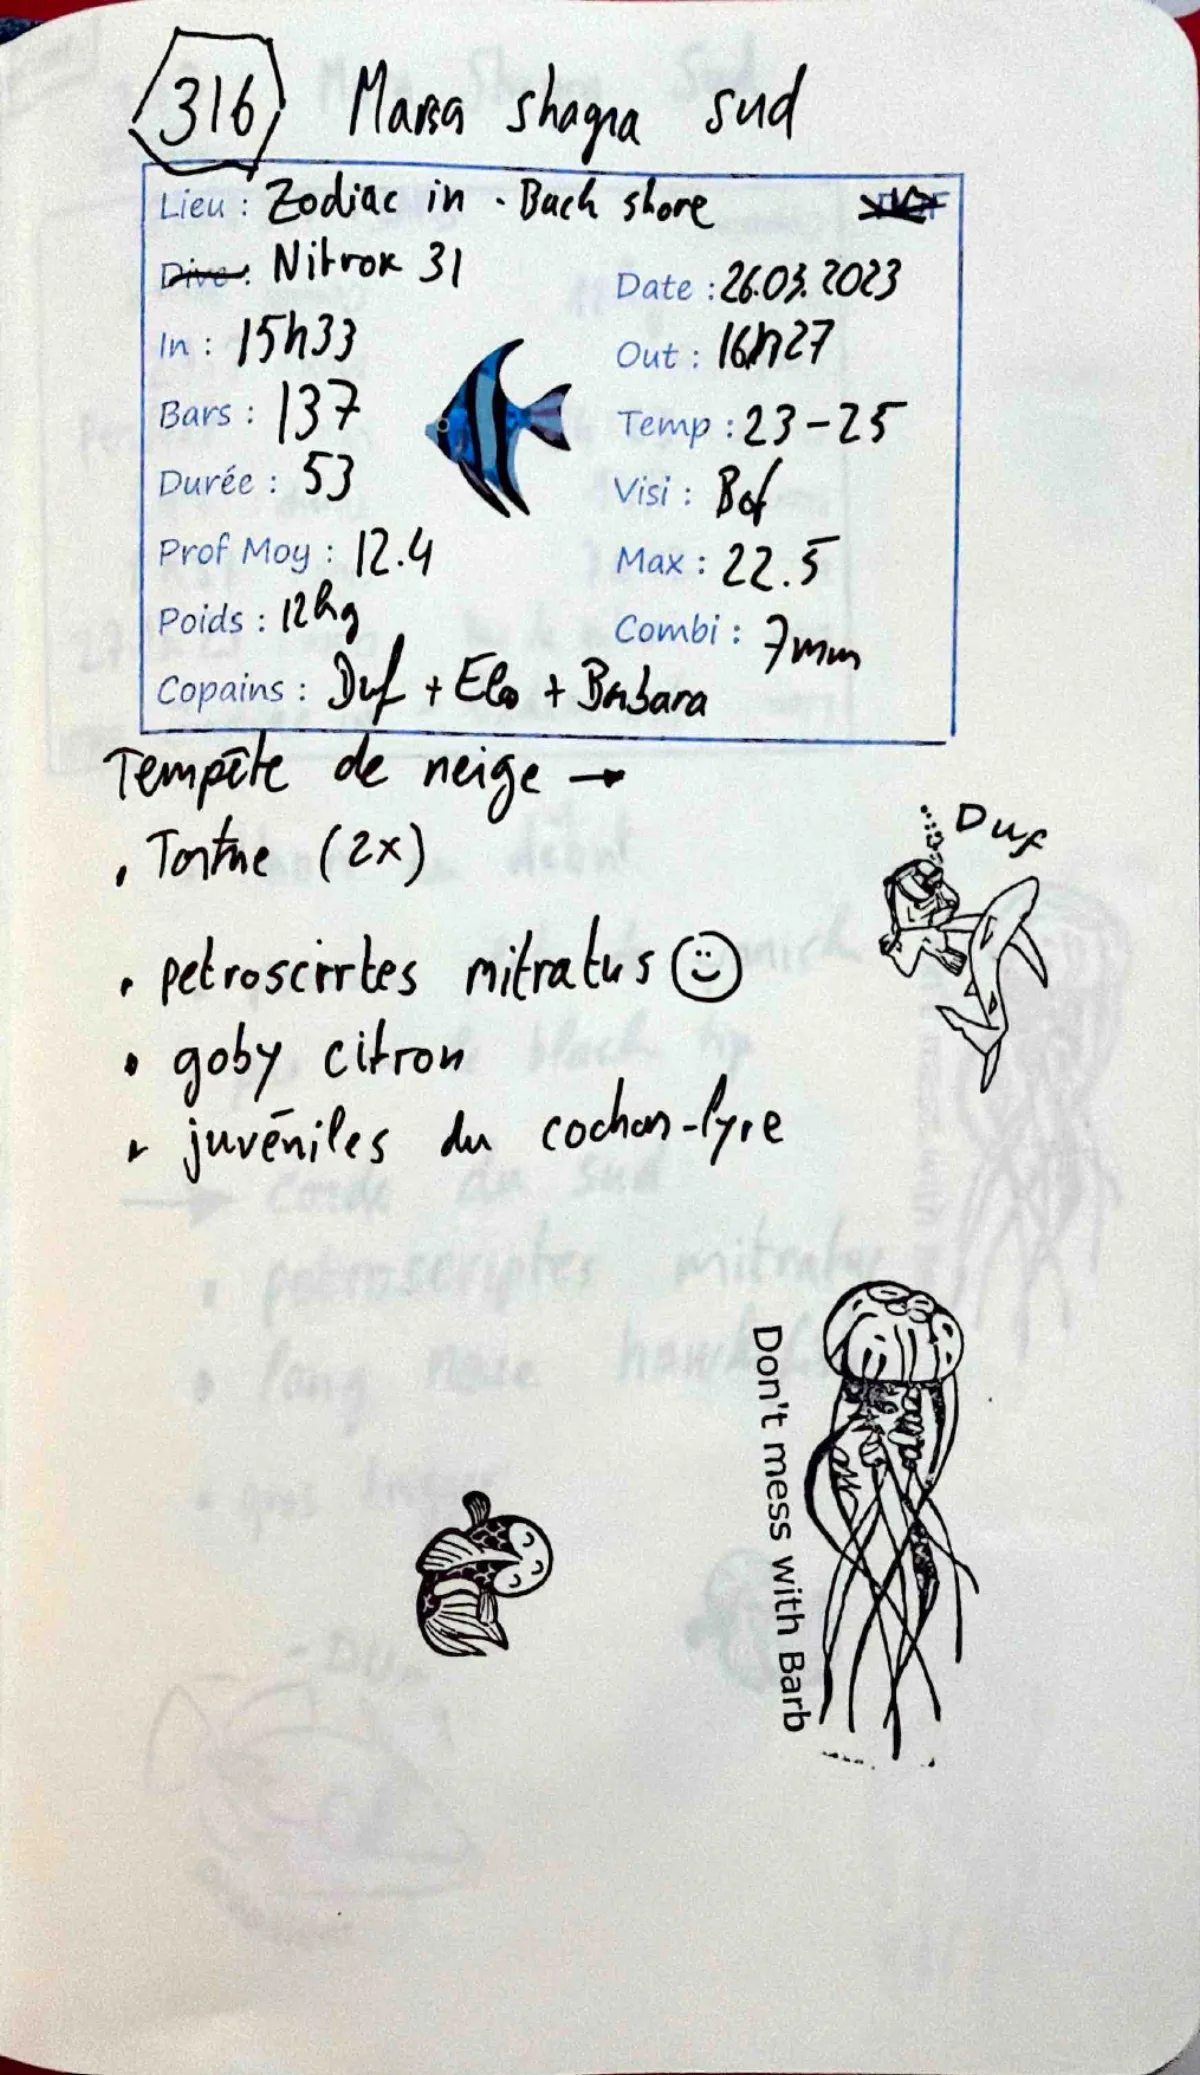 316 Marsa shagra sud
Lieu : Zodiac in - Back shore
Dive : Nitrox 31
Date : 26.03.2023
In : 15h33
Out : 16h27
Bars : 137
Temp : 23-25
Durée : 53
Visi : Bof
Prof Moy : 12.4
Max : 22.5
Poids : 12kg
Combi : 7mm
Copains : Duf + Elo + Barbara
Tempête de neige →
• Tortue (2x)
Duf
• petroscirtes mitratus ☺
• goby citron
• juvéniles du cochon-lyre
Don't mess with Barb